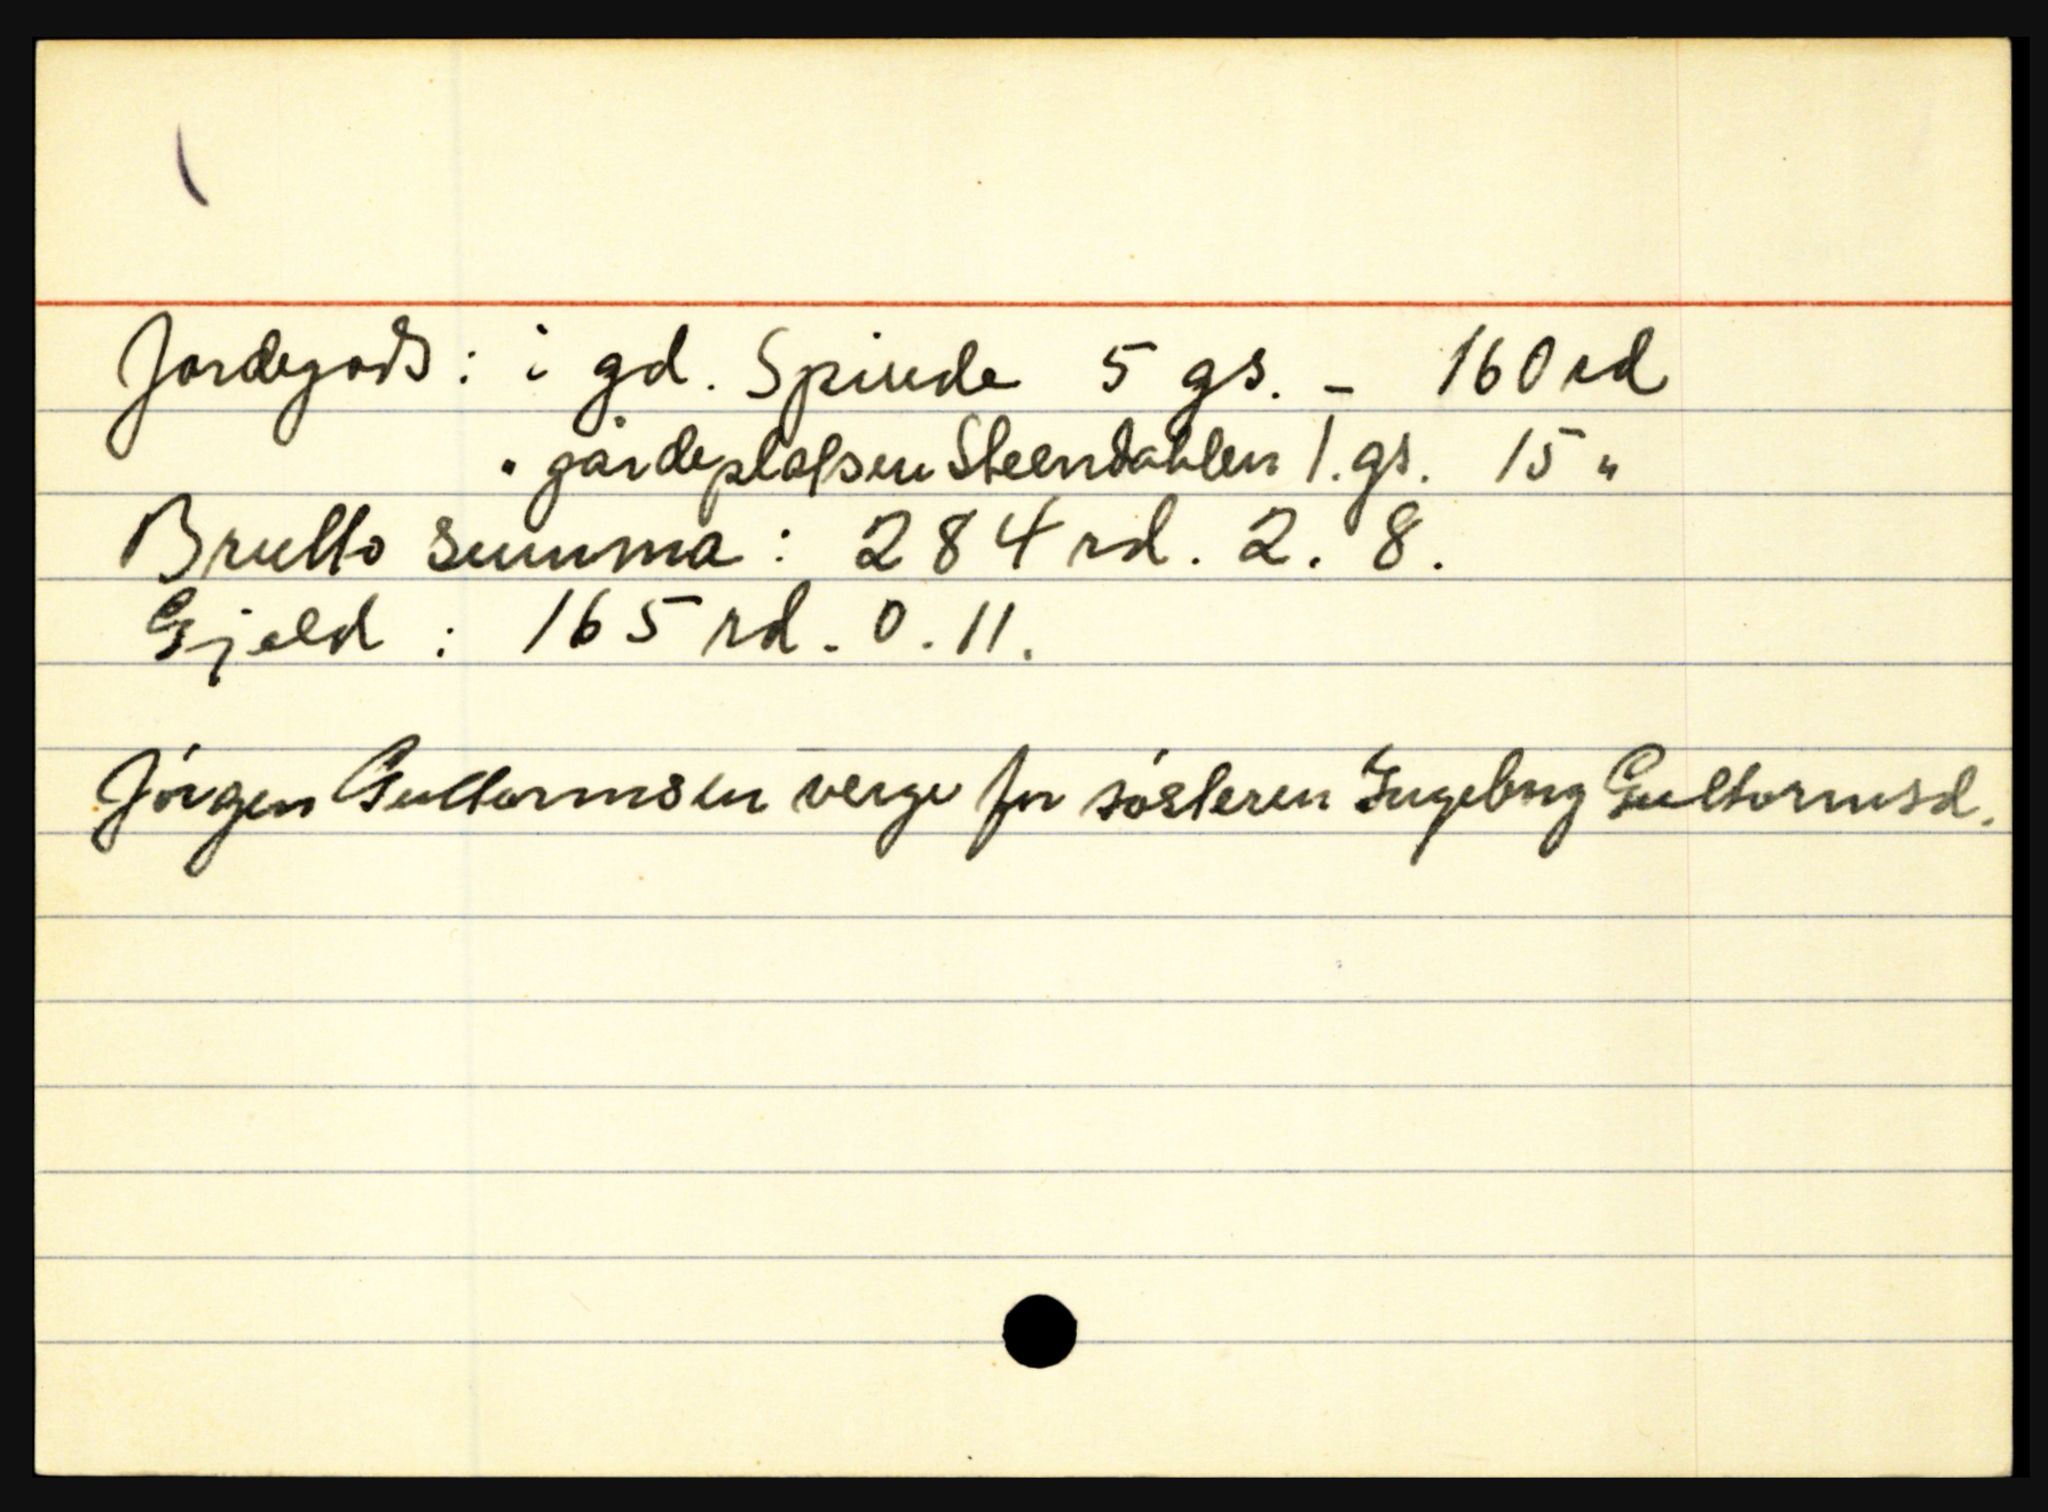 Jordegods: i gd. Spinde 5 gs. - 160 rd
" gårdeplassen Steendahlen 1. gs. 15 "
Brutto summa: 284 rd. 2. 8.
Gjeld: 165 rd. 0. 11.
Jörgen Guttormsen verge for sösteren Ingeborg Guttormsd.